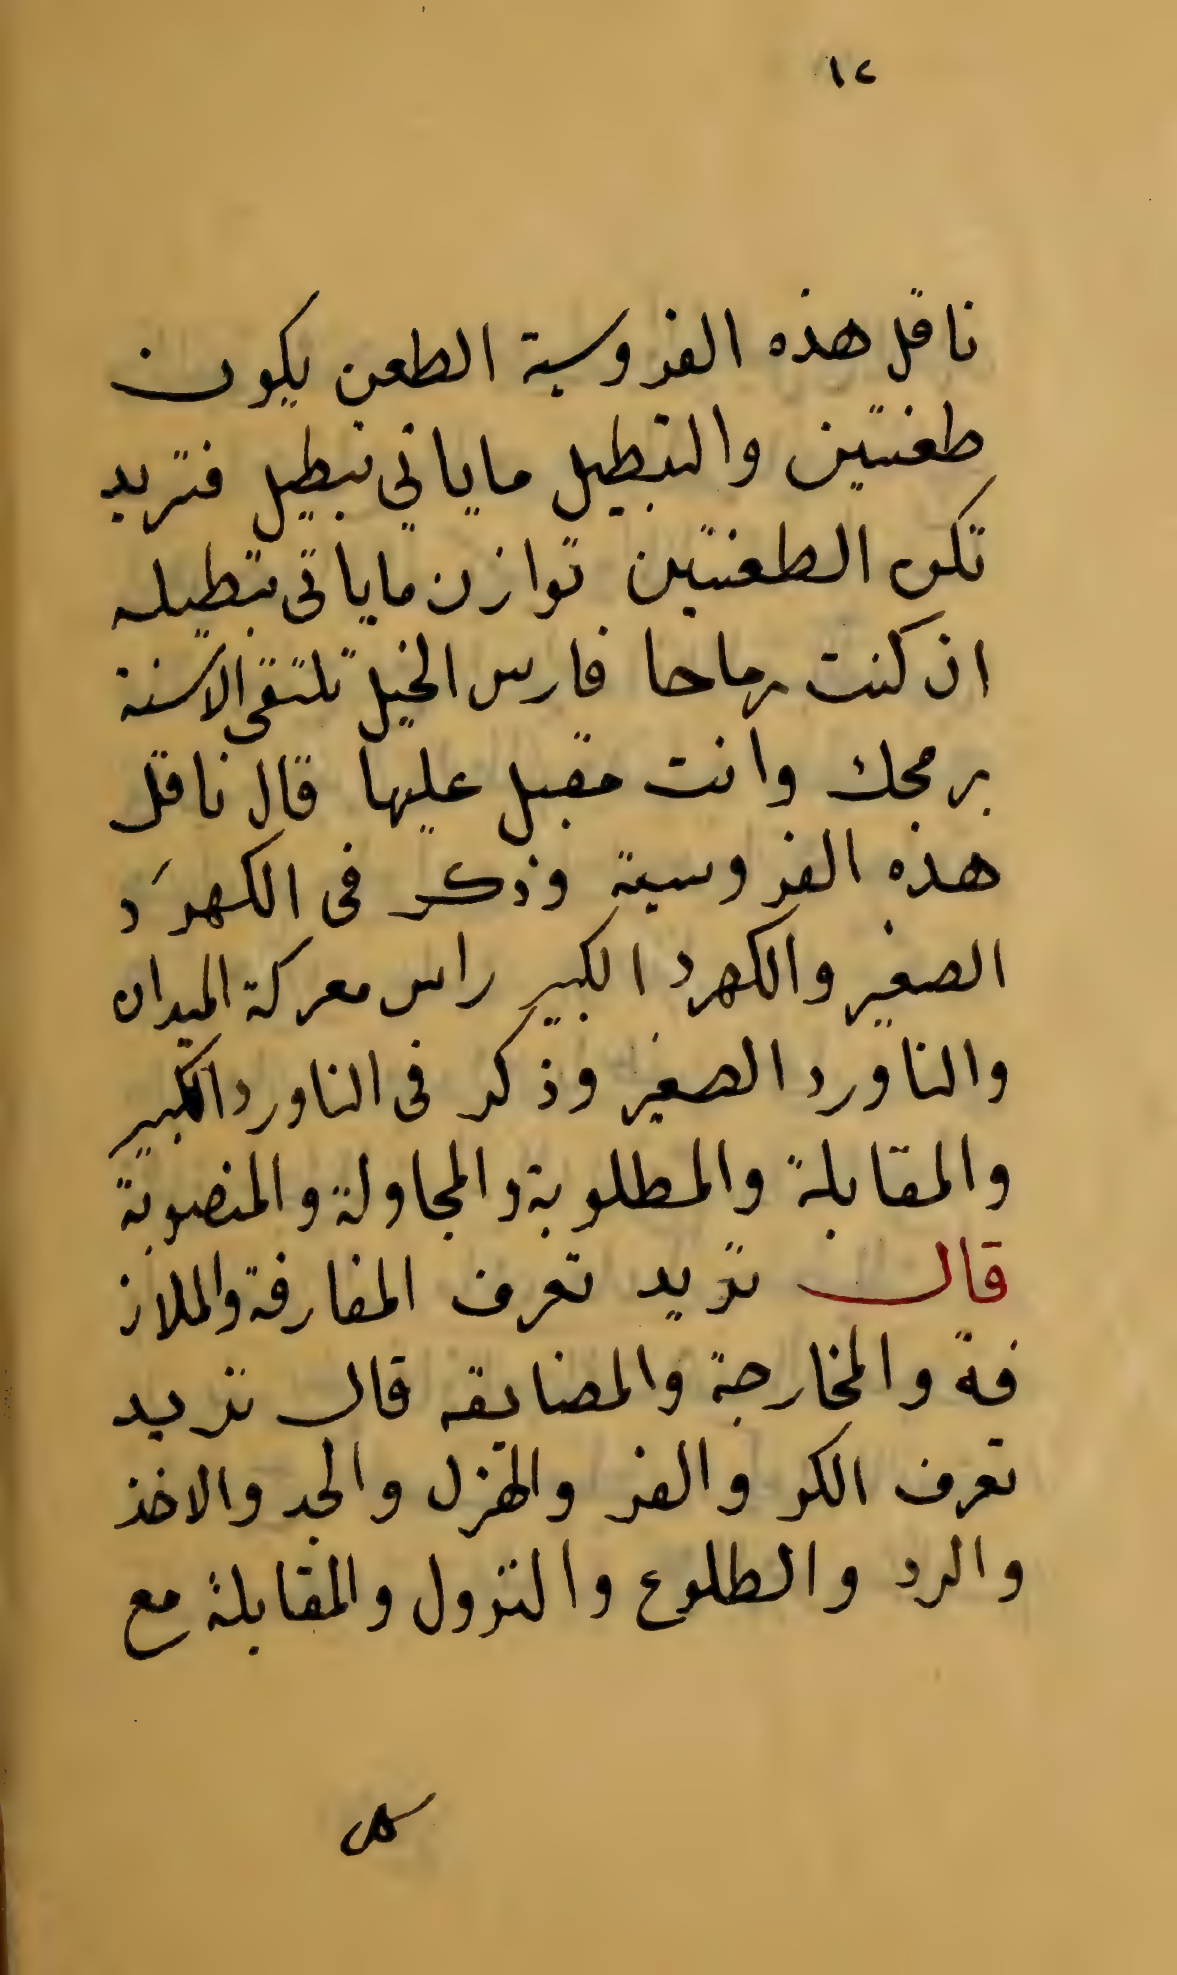 ١٢
ناقل هذه الفروسية الطعن يكون
طعنتين والتبطيل ماياتي تبطيل فتريد
تكن الطعنتين توازن ماياتى بتطيله
ان كنت رماحا فارس الخيل تلتقى الاسنة
برمحك وانت مقبل عليها قال ناقل
هذه الفروسية وذكر فى الكهرَد
الصغير والكهرد الكبير راس معركة الميدان
والناورد الصغير وذكر فى الناورد الكبير
والمقابلة والمطلوبة والمجاولة والمنصوبة
قال تريد تعرف المفارقة والملاز
فة والمخارجة والمضايقه قال تريد
تعرف الكر والفر والهزل والجد والاخذ
والرد والطلوع والنزول والمقابلة مع
كل